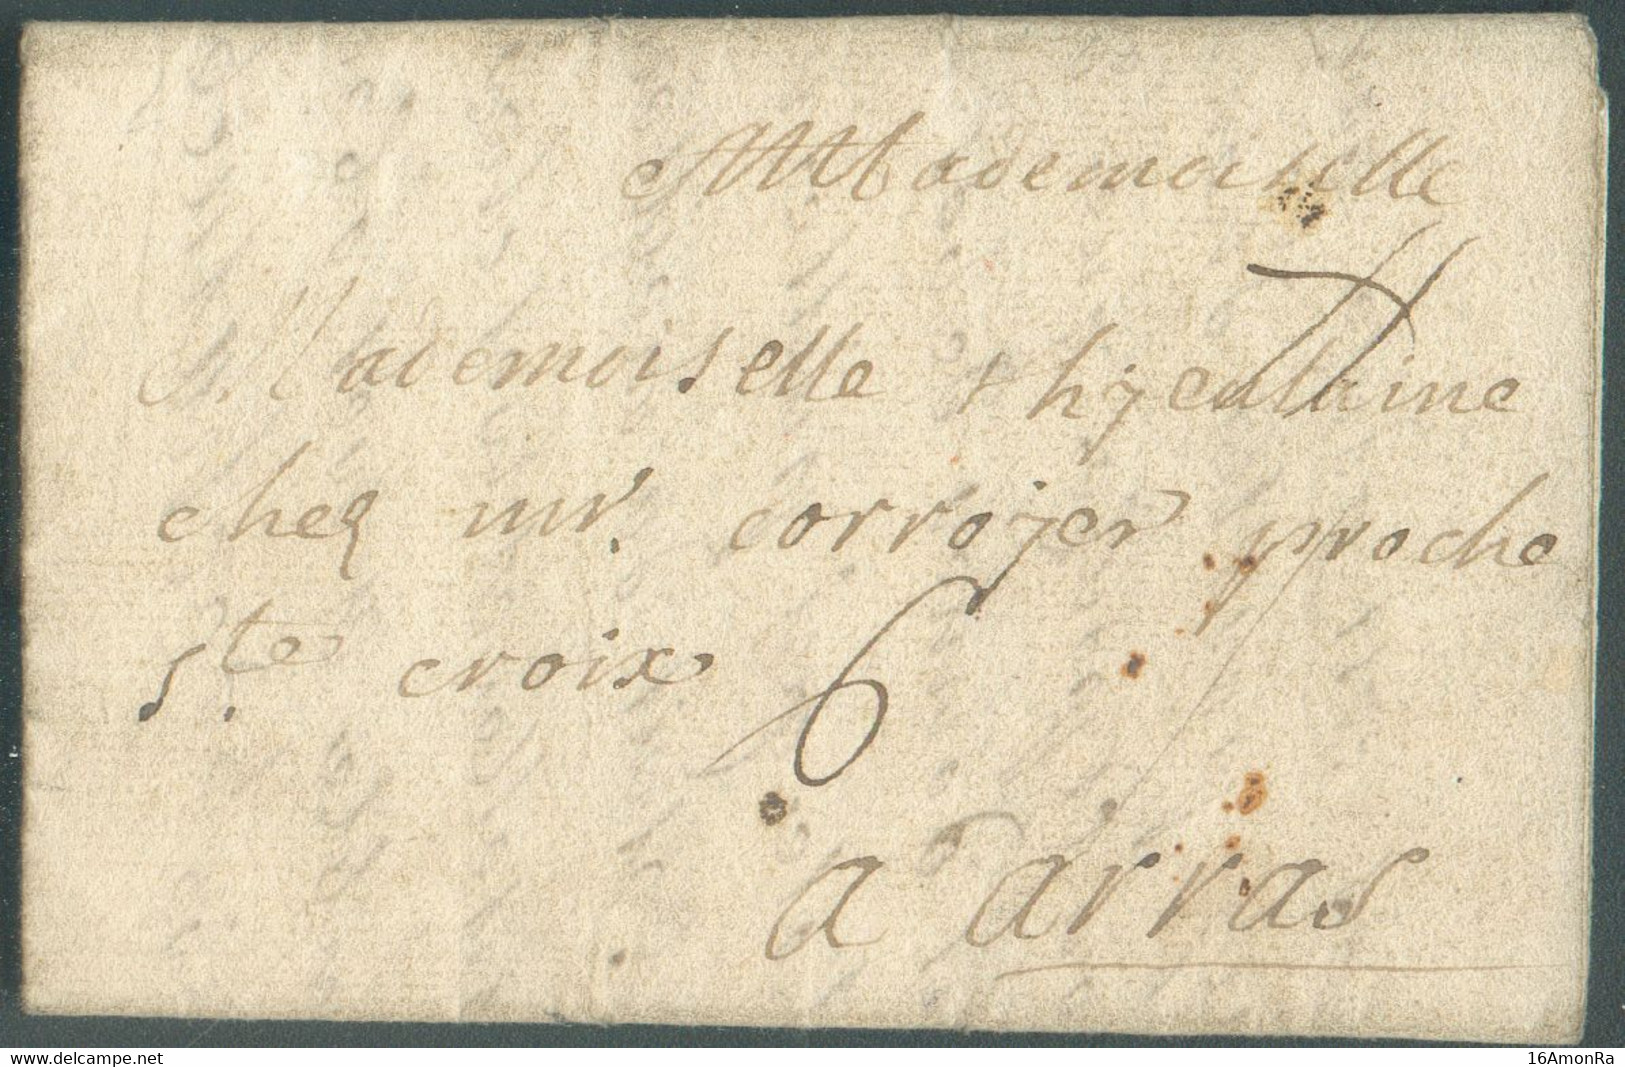 Mademoiselle
Mademoiselle thyeulaine
chez mr. corroyer proche
s.te croix
6
a arras
www.delcampe.net
16AmonRa